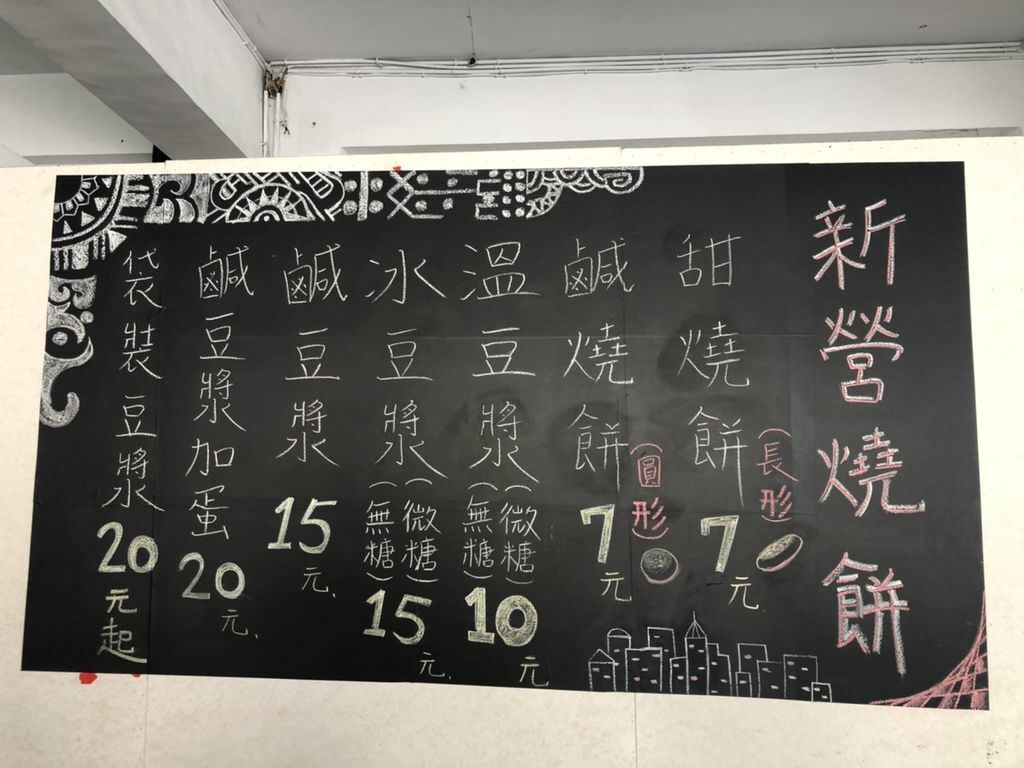 新營燒餅
甜燒餅(長形)7元
鹹燒餅(圓形)7元
溫豆漿(微糖)(無糖)10元
冰豆漿(微糖)(無糖)15元
鹹豆漿15元
鹹豆漿加蛋20元
袋裝豆漿20元起